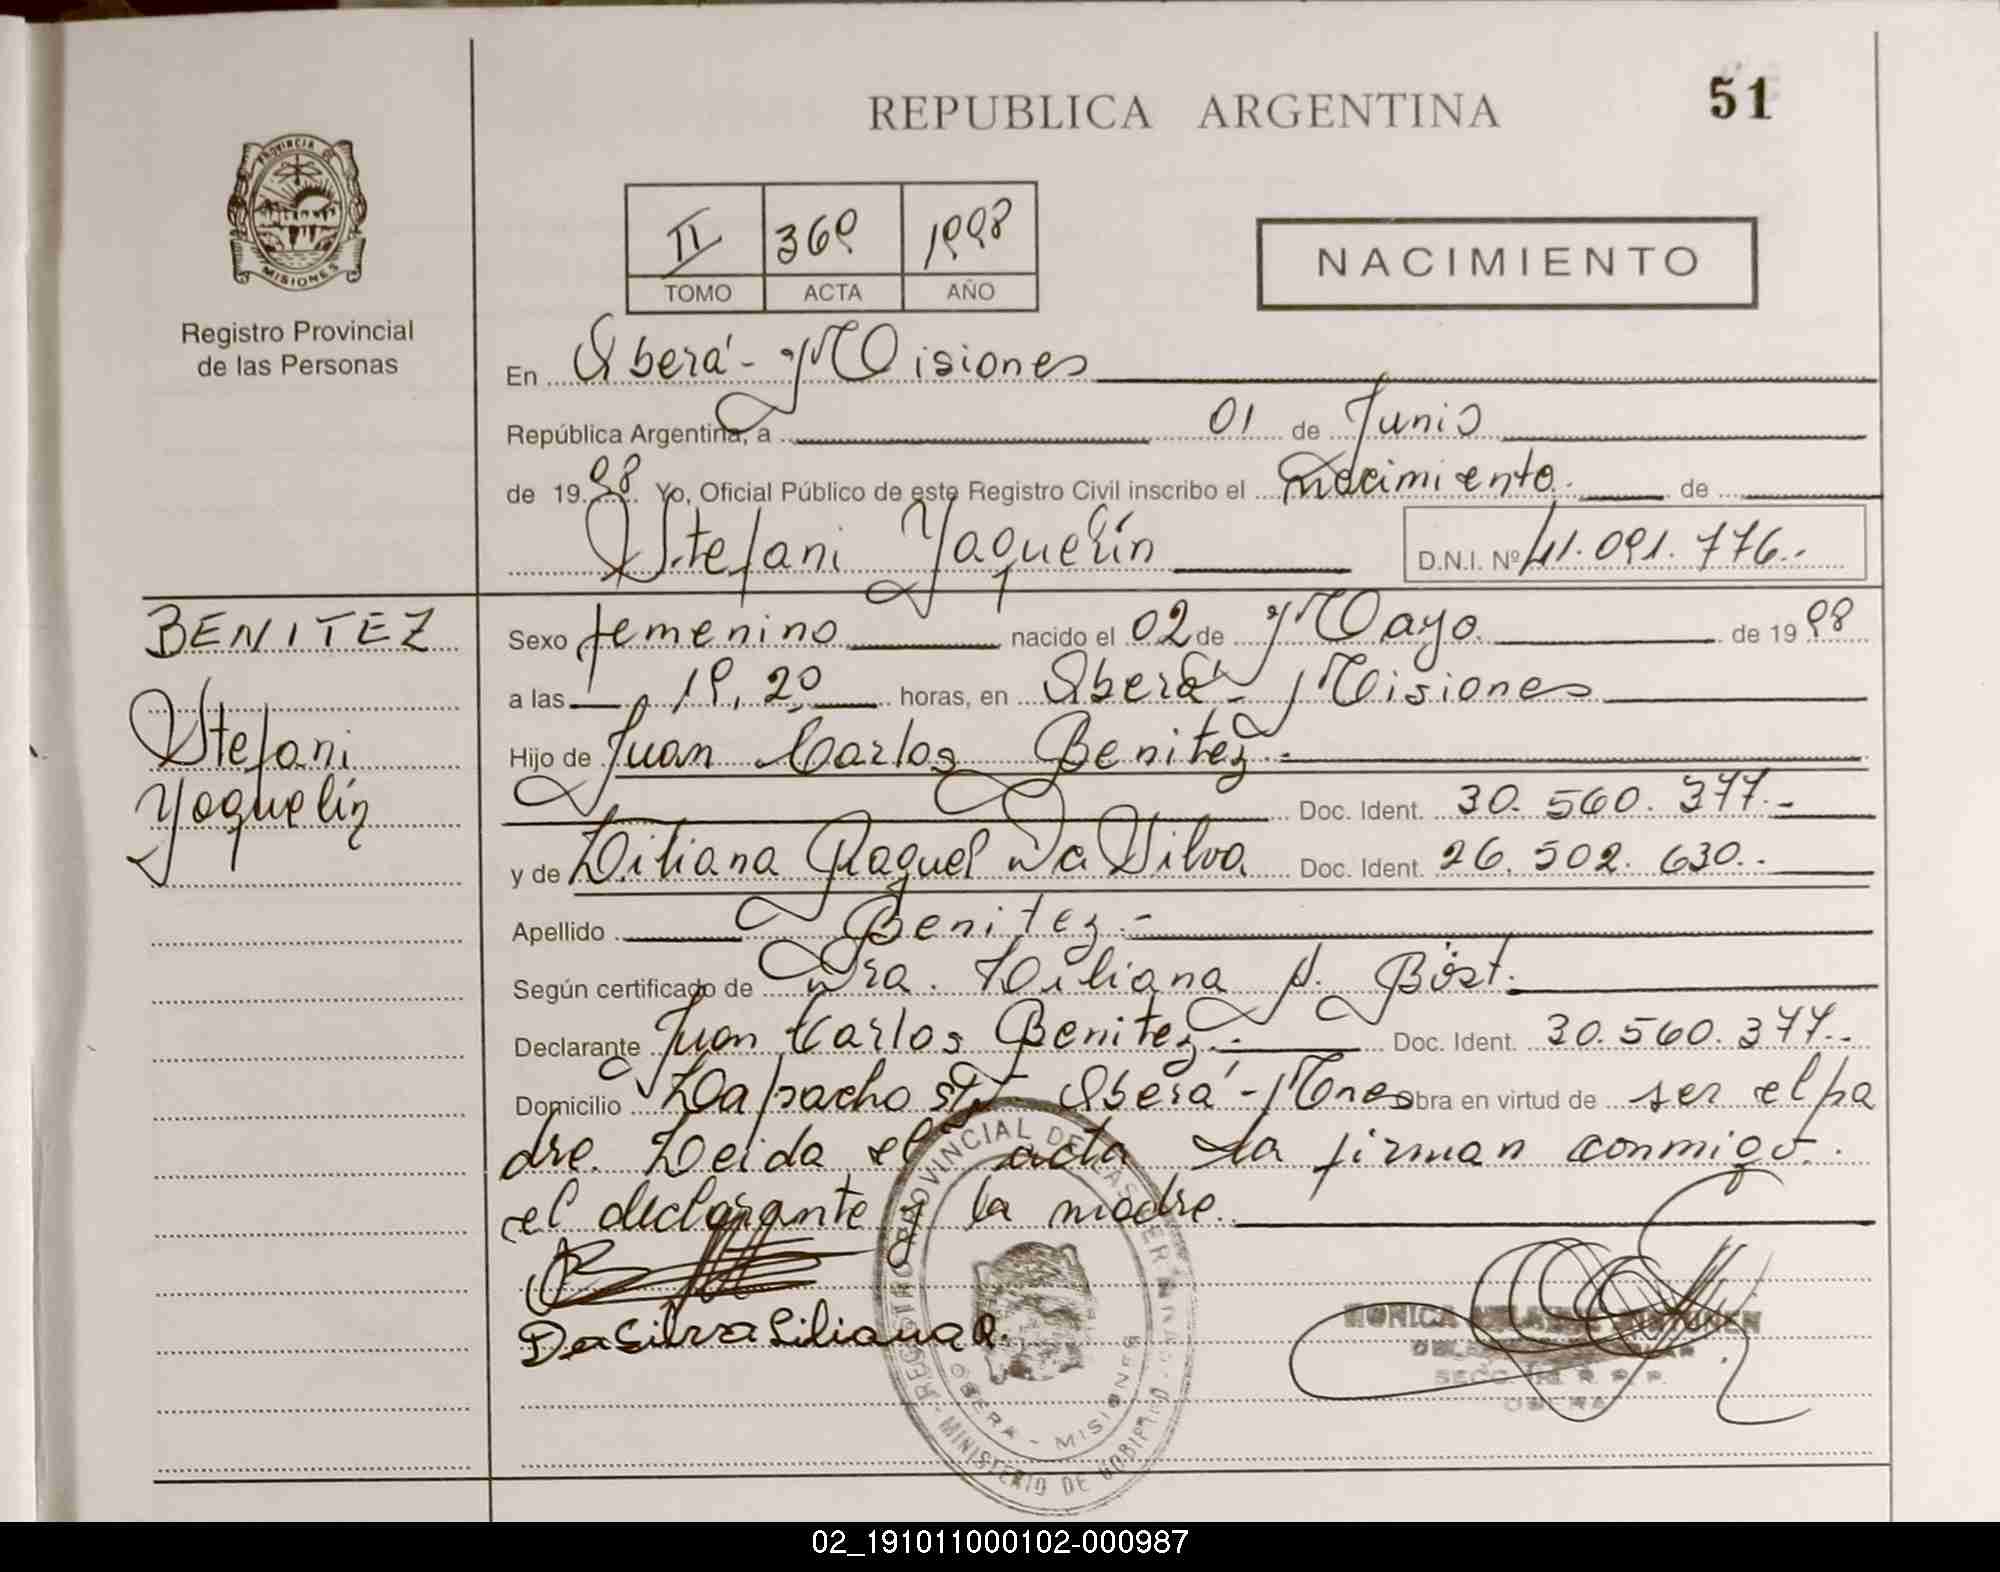 REPUBLICA ARGENTINA
51
PROVINCIA DE
MISIONES
Registro Provincial
de las Personas
II 369 1998
TOMO ACTA AÑO
NACIMIENTO
En Oberá - Misiones
República Argentina, a 01 de Junio
de 1998 Yo, Oficial Público de este Registro Civil inscribo el nacimiento. de
Stefani Yaquelín D.N.I. Nº 41.091.776.
BENITEZ
Stefani
Yaquelín
Sexo femenino nacido el 02 de Mayo de 1998
a las 19,20 horas, en Oberá - Misiones
Hijo de Juan Carlos Benitez.-
Doc. Ident. 30.560.377.-
y de Liliana Raquel Da Silva Doc. Ident. 26.502.630..
Apellido Benitez.-
Según certificado de Dra. Liliana N. Böst.
Declarante Juan Carlos Benitez.- Doc. Ident. 30.560.377..
Domicilio Lapacho Oberá - Mnes obra en virtud de ser el pa
dre. Leida el acta la firman conmigo.
el declarante y la madre.
Da Silva Liliana R.
REGISTRO PROVINCIAL DE LAS PERSONAS
OBERA - MISIONES
MINISTERIO DE GOBIERNO
MONICA
SECC.
OBERA
02_191011000102-000987